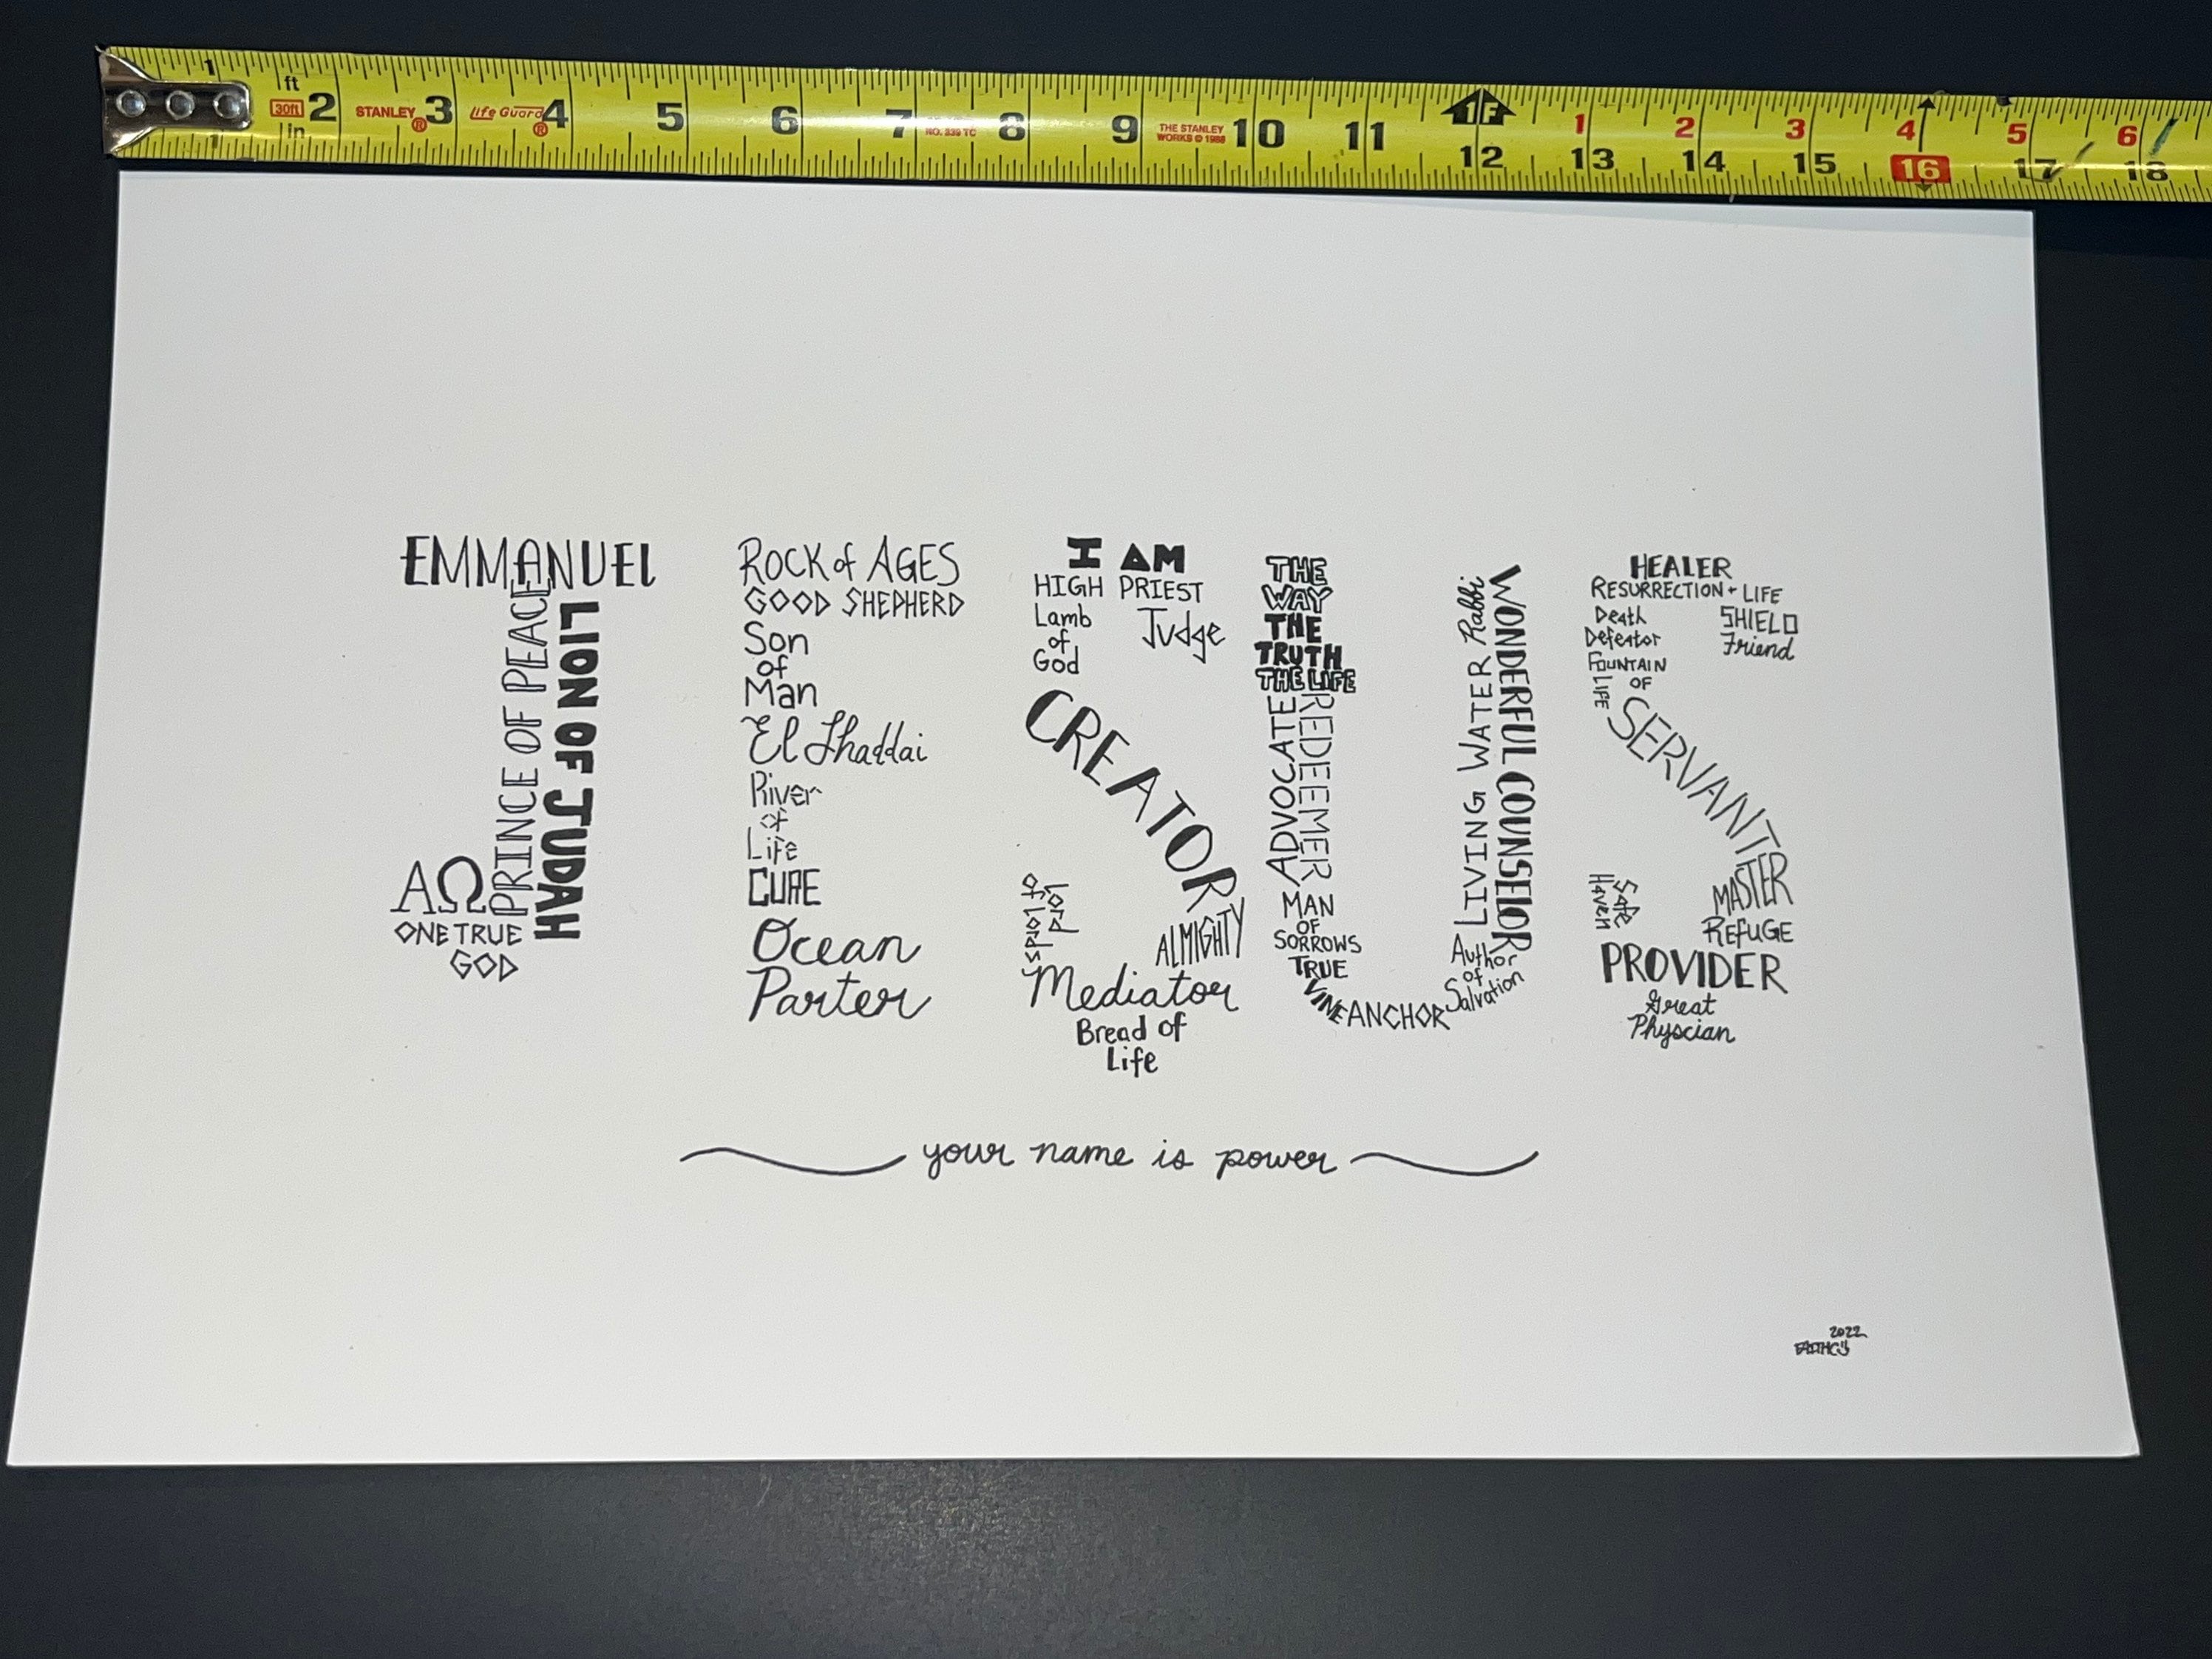 1 ft 2 3 4 5 6 7 8 9 10 11 1F 1 2 3 4 5 6
30ft STANLEY® Life Guard® NO. 339 TC THE STANLEY
1 in WORKS © 1988 12 13 14 15 16 17 18
EMMANUEL
PRINCE OF PEACE
LION OF JUDAH
ΑΩ
ONE TRUE
GOD
ROCK of AGES
GOOD SHEPHERD
Son
of
Man
El Shaddai
River
of
Life
CURE
Ocean
Parter
I AM
HIGH PRIEST
Lamb
of
God
Judge
CREATOR
ALMIGHTY
Lord
of lords
Mediator
Bread of
Life
THE
WAY
THE
TRUTH
THE LIFE
ADVOCATE
REDEEMER
MAN
OF
SORROWS
TRUE
VINE
ANCHOR
Author
of
Salvation
LIVING WATER
Rabbi
WONDERFUL COUNSELOR
HEALER
RESURRECTION + LIFE
Death
Defeator
SHIELD
Friend
FOUNTAIN
OF
LIFE
SERVANT
MASTER
REFUGE
Safe
Haven
PROVIDER
Great
Physcian
your name is power
2022